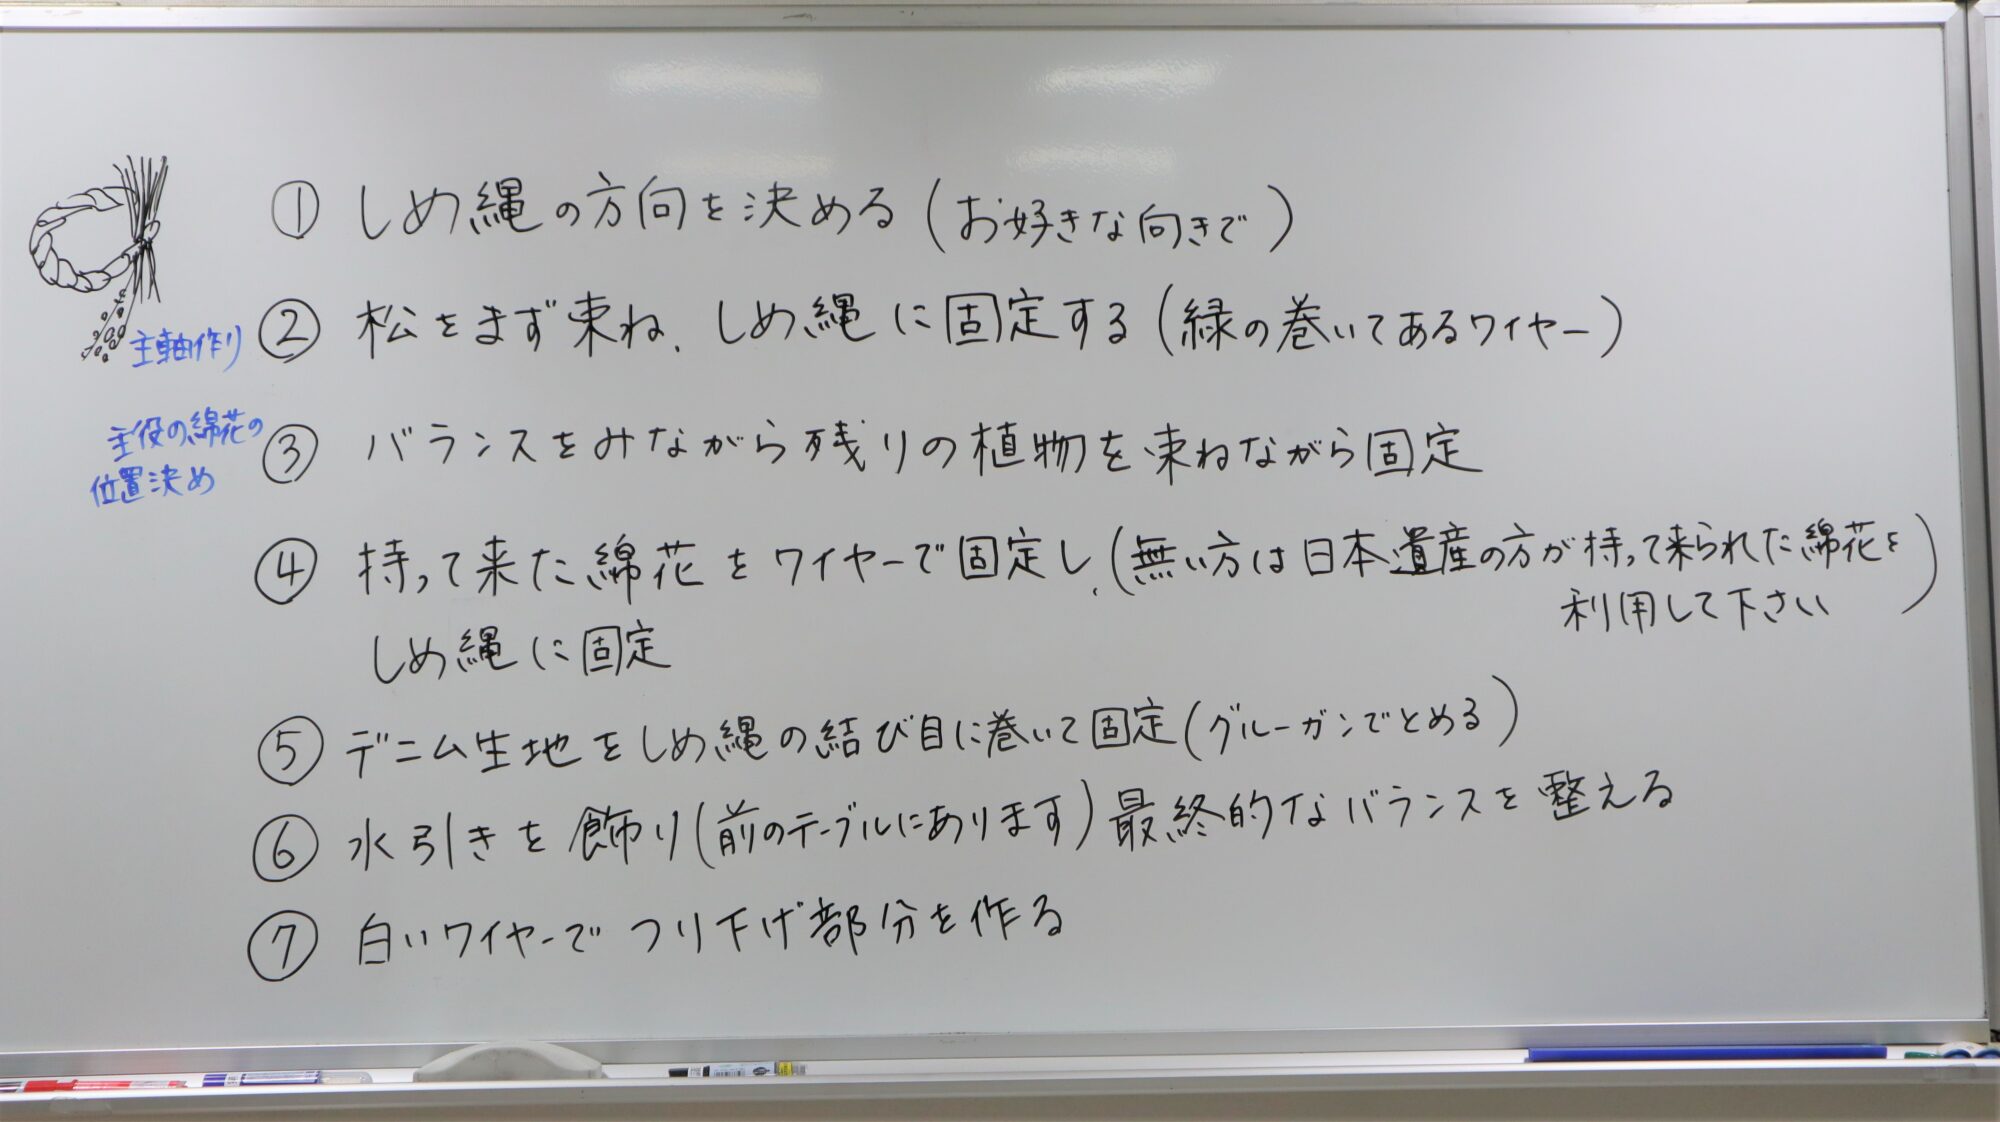 ① しめ縄の方向を決める(お好きな向きで)
② 松をまず束ね、しめ縄に固定する(緑の巻いてあるワイヤー)
主軸作り
③ バランスをみながら残りの植物を束ねながら固定
主役の綿花の
位置決め
④ 持って来た綿花をワイヤーで固定し、(無い方は日本遺産の方が持って来られた綿花を
利用して下さい)
しめ縄に固定
⑤ デニム生地をしめ縄の結び目に巻いて固定(グルーガンでとめる)
⑥ 水引きを飾り(前のテーブルにあります)最終的なバランスを整える
⑦ 白いワイヤーでつり下げ部分を作る